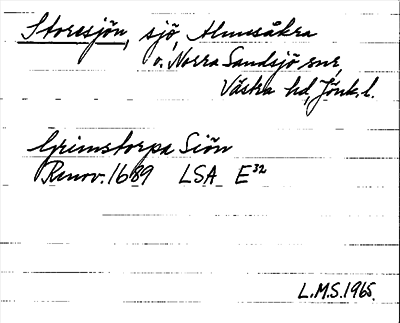 Storesjön, sjö, Almesåkra
o. Norra Sandsjö snr,
Västra hd, Jönk. l.
Grimstorpa Siön
Renov. 1689 LSA E³²
L.M.S. 1965.